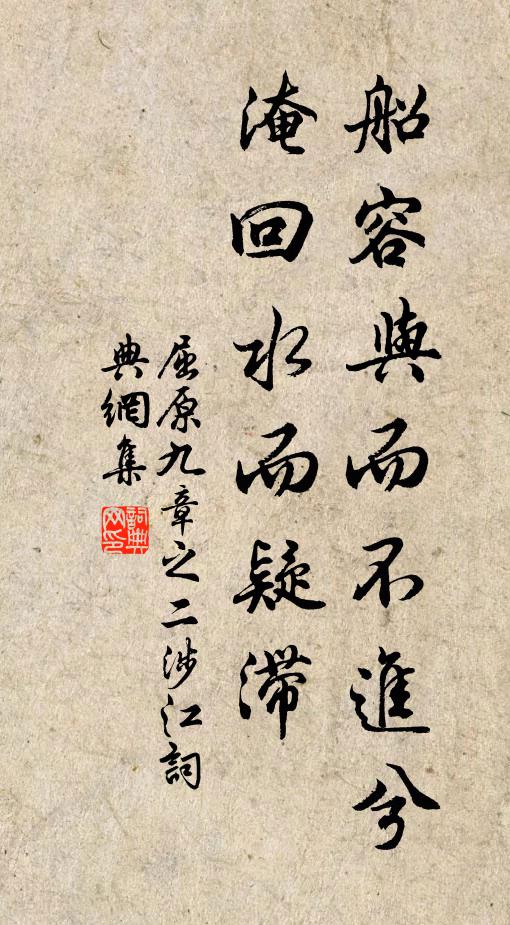 船容與而不進兮
淹回水而疑滯
屈原九章之二涉江詞
典網集
詞典网印